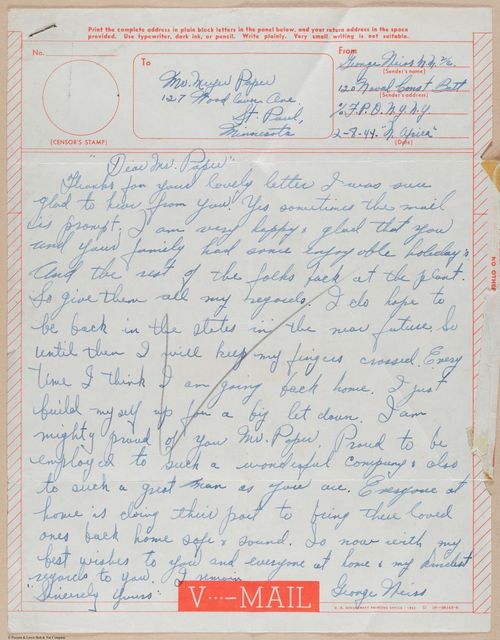 Print the complete address in plain block letters in the panel below, and your return address in the space
provided. Use typewriter, dark ink, or pencil. Write plainly. Very small writing is not suitable.
No.
(CENSOR'S STAMP)
To
Mr. Meyer Paper
127 Wood Ave.
St. Paul,
Minnesota
From
George Neiss
(Sender's name)
120 Naval Const Batt
(Sender's address)
% F.P.O. N.Y. N.Y
2-8-44 "N. Africa"
(Date)
"Dear Mr. Paper"
Thanks for your lovely letter I was sure
glad to hear from you. Yes sometimes the mail
is prompt. I am very happy & glad that you
and your family had some enjoyable holiday's.
And the rest of the folks back at the plant.
So give them all my regards. I do hope to
be back in the states in the near future. So
until then I will keep my fingers crossed. Every
time I think I am going back home. I just
build myself up for a big let down. I am
mighty proud of you Mr. Paper. Proud to be
employed to such a wonderful company & also
to such a great man as you are. Everyone at
home is doing their part to bring there loved
ones back home safe & sound. So now with my
best wishes to you and everyone at home & my
regards to you. I remain
"Sincerely Yours"
George Neiss
V···—MAIL
U. S. GOVERNMENT PRINTING OFFICE : 1943
NO OTHER